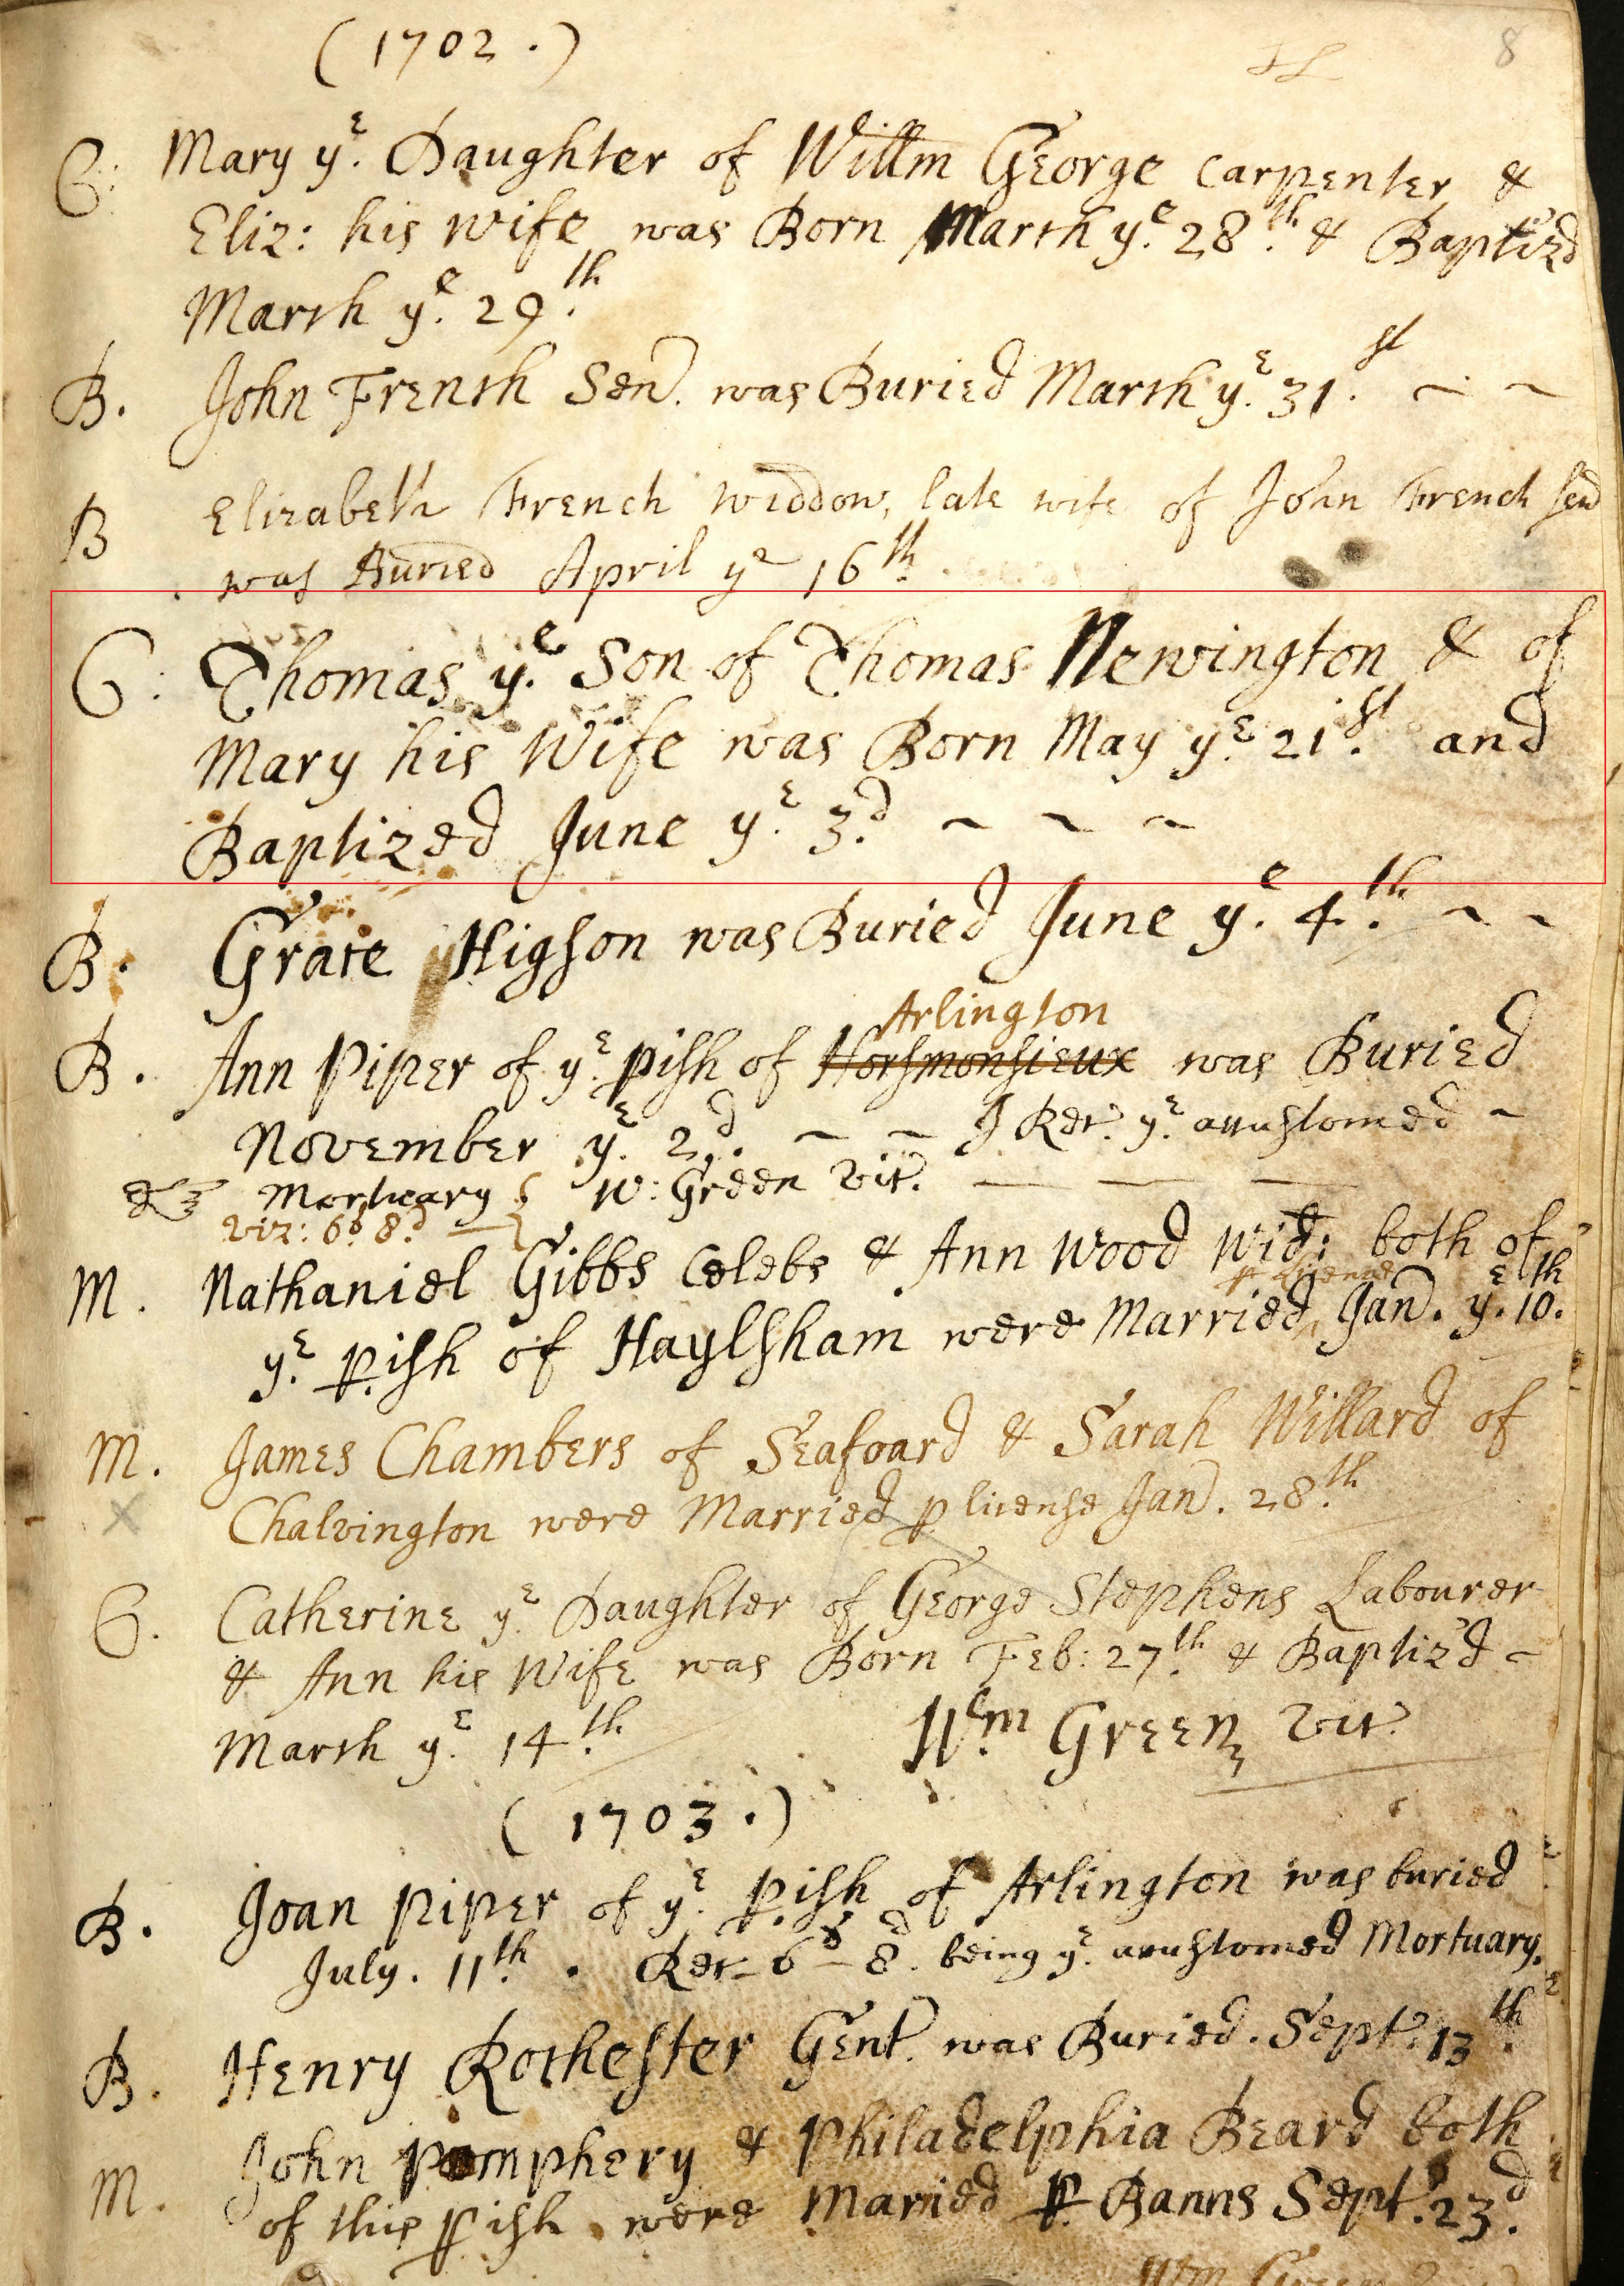 (1702.)
8
C: Mary yͤ. Daughter of Willm George Carpenter &
Eliz: his wife was Born March yͤ. 28.th & Baptiz'd
March yͤ. 29.th
B. John French Sen. was Buried March yͤ. 31.st
B Elizabeth French Widdow, late wife of John French sen
was Buried April yͤ 16th.
C: Thomas yͤ. Son of Thomas Newington & of
Mary his Wife was Born May yͤ. 21.st and
Baptized June yͤ. 3.d
B. Grace Higson was Buried June yͤ. 4.th
Arlington
B. Ann Piper of yͤ. pish of Horsmonsieux was Buried
November yͤ. 2.d I Rec. yͤ. accustomed
Mortuary W: Green Vic.
viz: 6s. 8d.
M. Nathaniel Gibbs Celebs & Ann Wood Wid: both of
p License
yͤ. pish of Haylsham were Married Jan. yͤ. 10.th
M. James Chambers of Seafoard & Sarah Willard of
Chalvington were Married p license Jan. 28.th
C. Catherine yͤ. Daughter of George Stephens Labourer
& Ann his Wife was Born Feb: 27.th & Baptiz'd
March yͤ. 14.th Wm. Green Vic.
(1703.)
B. Joan Piper of yͤ. pish of Arlington was buried
July. 11.th. Rec. 6s 8d. being yͤ. accustomed Mortuary.
B. Henry Rochester Gent. was Buried. Sept. 13.th
M. John Pomphery & Philadelphia Beard both
of this pish were Maried p Banns Sept. 23.d
Wm Green